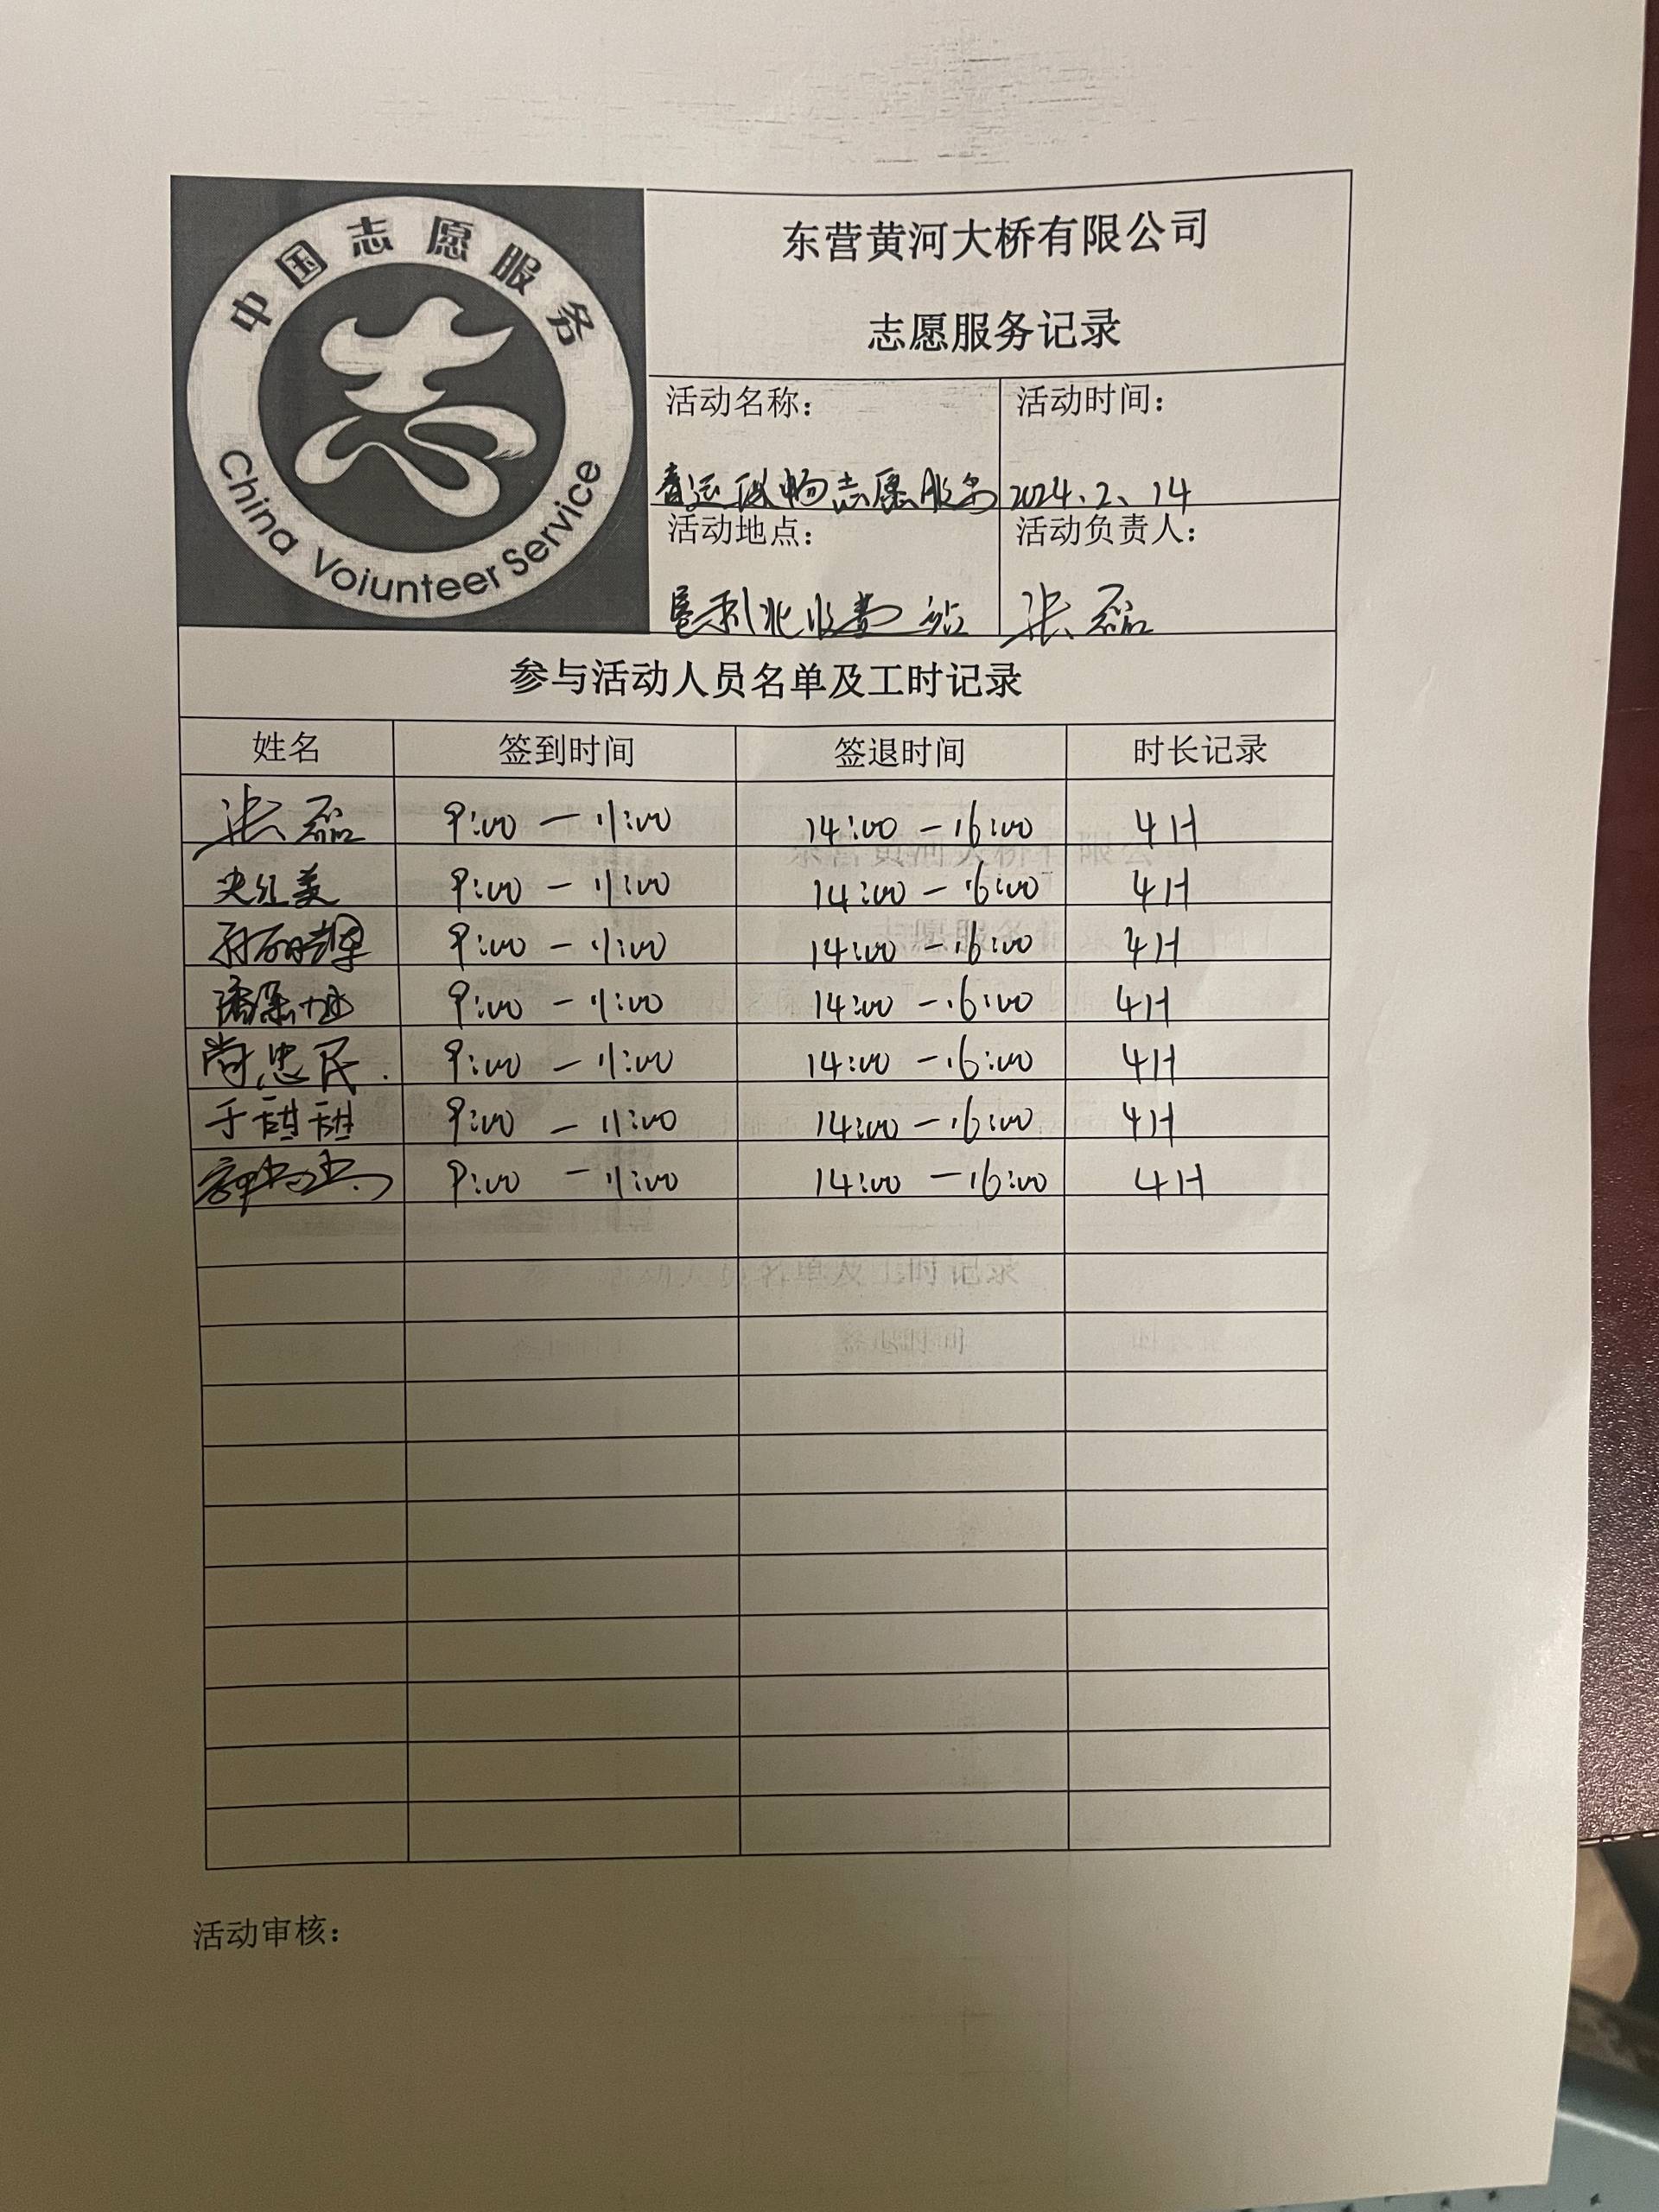 中国志愿服务
China Voiunteer Service
东营黄河大桥有限公司
志愿服务记录
活动名称:
活动时间:
春运保畅志愿服务
2024.2、14
活动地点:
活动负责人:
垦利北收费站
张磊
参与活动人员名单及工时记录
姓名 签到时间 签退时间 时长记录
张磊 9:00 — 11:00 14:00 — 16:00 4H
9:00 — 11:00 14:00 — 16:00 4H
9:00 — 11:00 14:00 — 16:00 4H
9:00 — 11:00 14:00 — 16:00 4H
尚忠民. 9:00 — 11:00 14:00 — 16:00 4H
于甜甜 9:00 — 11:00 14:00 — 16:00 4H
9:00 — 11:00 14:00 — 16:00 4H
活动审核: